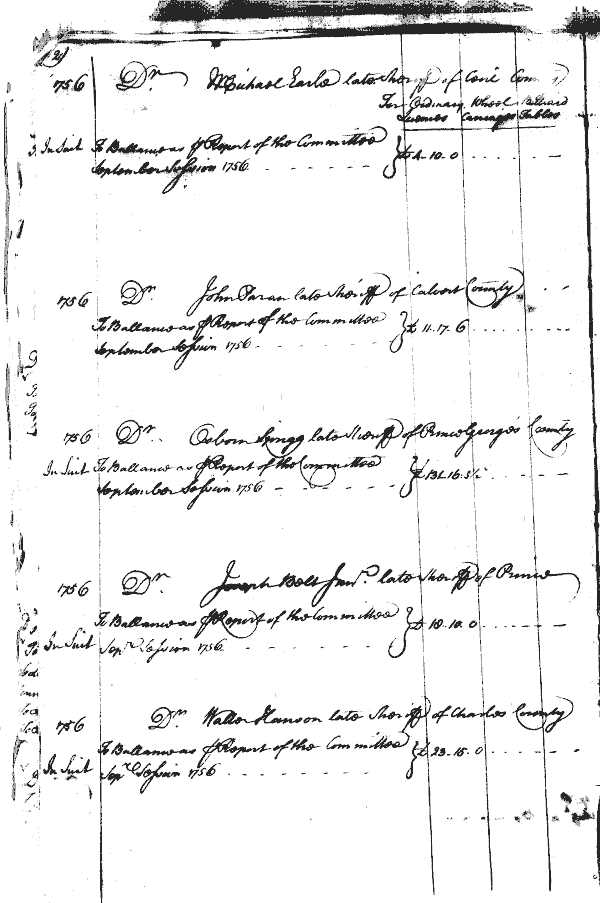 (2)
1756 Dr. Michael Earle late Sheriff of Cecil County
For Ordinary Wheel Billiard
Licences Carriages Tables
In Suit To Ballance as ⅌ Report of the Committee
September Session 1756 } £4. 10. 0
1756 Dr. John Paran late Sheriff of Calvert County
To Ballance as ⅌ Report of the Committee
September Session 1756 } £ 11. 17. 6
1756 Dr. Osborn Sprigg late Sheriff of Prince George's County
In Suit To Ballance as ⅌ Report of the Committee
September Session 1756
1756 Dr. Joseph Belt Junr. late Sheriff of Prince
To Ballance as ⅌ Report of the Committee
In Suit Sepr. Session 1756 } £ 18. 10. 0
1756 Dr. Walter Hanson late Sheriff of Charles County
To Ballance as ⅌ Report of the Committee
In Suit Sepr. Session 1756 } £ 23. 15. 0